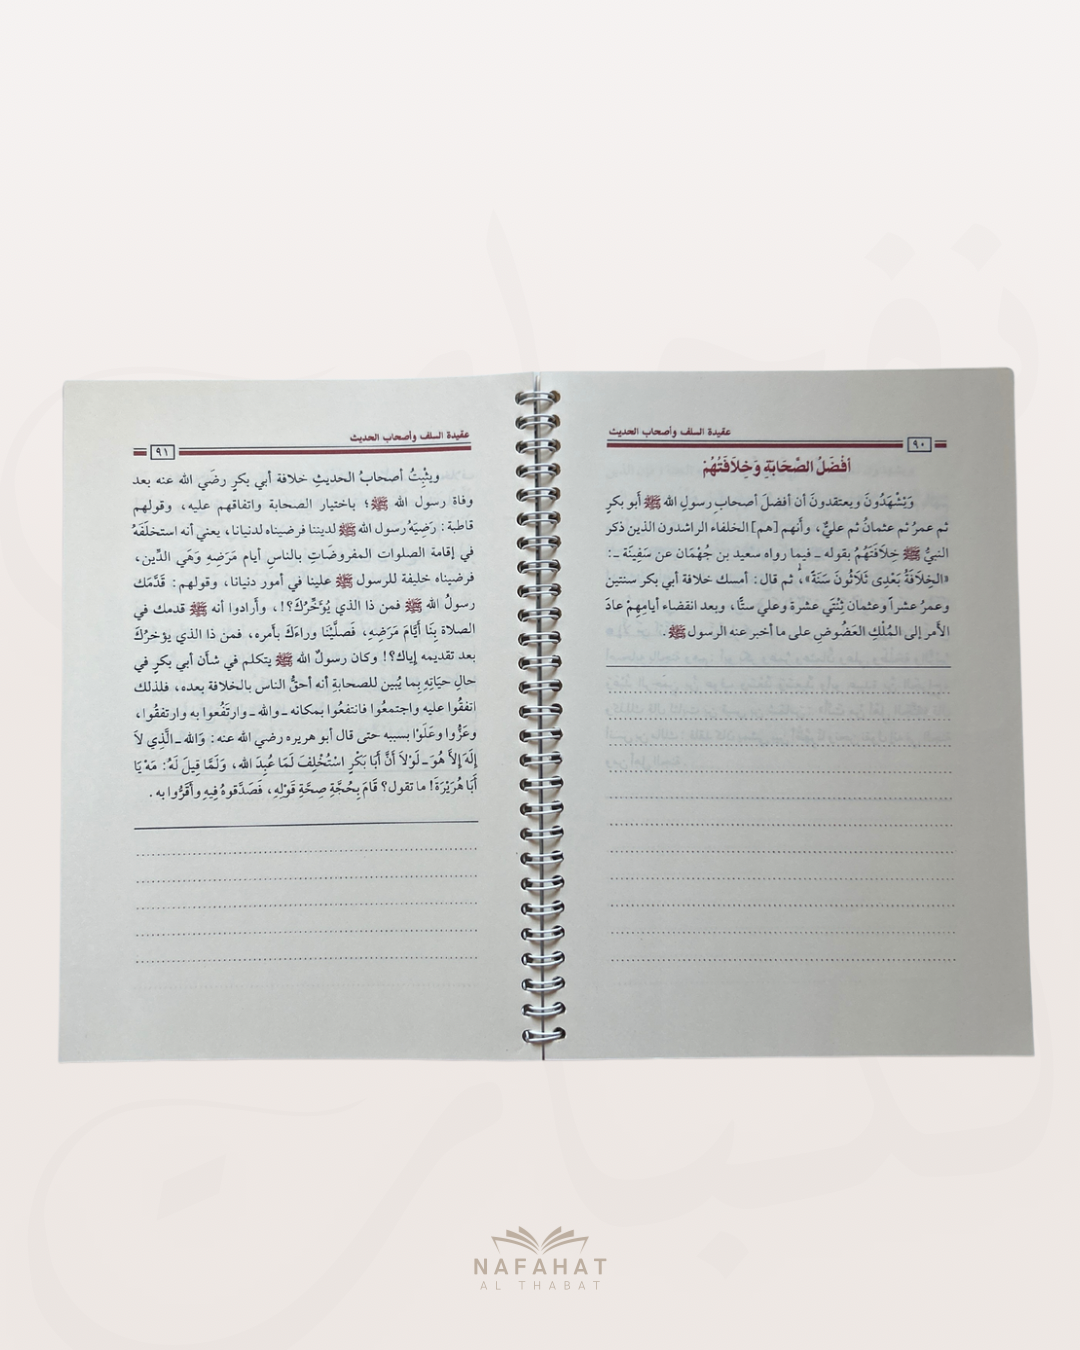 عقيدة السلف وأصحاب الحديث
٩٠
أفْضَلُ الصَّحَابَةِ وَخِلَافَتُهُمْ
وَيَشْهَدُونَ ويعتقدونَ أن أفضلَ أصحابِ رسولِ الله ﷺ أبو بكرٍ
ثم عمرُ ثم عثمانُ ثم عليٌّ، وأنهم [هم] الخلفاء الراشدون الذين ذكر
النبيُّ ﷺ خِلَافَتَهُمُ بقوله ـ فيما رواه سعيد بن جُهْمَان عن سَفِينَة ـ:
«الخِلَافَةُ بَعْدِى ثَلَاثُونَ سَنَةً»، ثم قال: أمسك خلافة أبي بكر سنتين
وعمرُ عشراً وعثمان ثِنْتَي عشرة وعلي ستًّا، وبعد انقضاء أيامِهِمْ عادَ
الأمر إلى المُلْكِ العَضُوضِ على ما أخبر عنه الرسول ﷺ.
عقيدة السلف وأصحاب الحديث
٩١
ويثْبِتُ أصحابُ الحديثِ خلافة أبي بكرٍ رضَي الله عنه بعد
وفاة رسول الله ﷺ؛ باختيار الصحابة واتفاقهم عليه، وقولهم
قاطبة: رَضِيَهُ رسول الله ﷺ لديننا فرضيناه لدنيانا، يعني أنه استخلَفَهُ
في إقامة الصلوات المفروضَاتِ بالناسِ أيام مَرَضِهِ وَهَي الدِّين،
فرضيناه خليفة للرسول ﷺ علينا في أمور دنيانا، وقولهم: قَدَّمَك
رسولُ الله ﷺ فمن ذا الذي يُوَخِّرُكَ؟!، وأَرادوا أنه ﷺ قدمك في
الصلاة بِنَا أَيَّامَ مَرَضِهِ، فَصلَّيْنَا وراءَكَ بأمره، فمن ذا الذي يؤخرُكَ
بعد تقديمه إياك؟! وكان رسولُ الله ﷺ يتكلم في شأن أبي بكرٍ في
حالِ حيَاتِهِ بِما يُبين للصحابةِ أنه أحقُّ الناس بالخلافة بعده، فلذلك
اتفقُوا عليه واجتمعُوا فانتفعُوا بمكانه ـ والله ـ وارتَفُعوا به وارتفقُوا،
وعَزُّوا وعَلَوْا بسببه حتى قال أبو هريره رضي الله عنه: وَالله ـ الَّذِي لاَ
إِلَهَ إِلاَّ هُوَ ـ لَوْلاَ أَنَّ أَبَا بَكْرٍ اسْتُخْلِفَ لَمَا عُبِدَ الله، وَلَمَّا قِيلَ لَهُ: مَهْ يَا
أَبَا هُرَيْرَةَ! ما تقول؟ قَامَ بِحُجَّةِ صِحَّةِ قَوْلِهِ، فَصَدَّقوهُ فِيهِ وأَقَرُّوا به.
NAFAHAT
AL THABAT